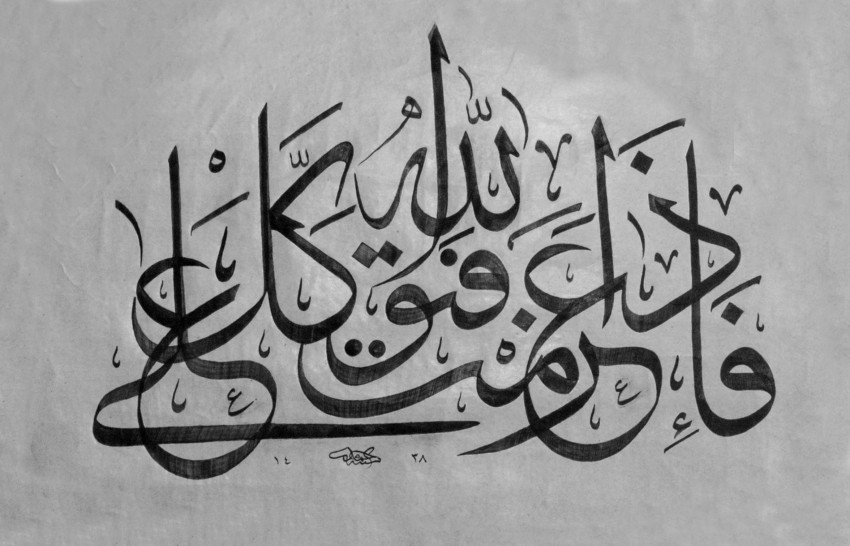 فَإِذَا عَزَمْتَ فَتَوَكَّلْ عَلَى اللَّهِ
١٤ ٣٨